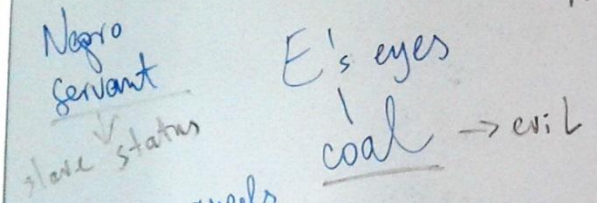 Negro
servant
slave status
E's eyes
coal → evil